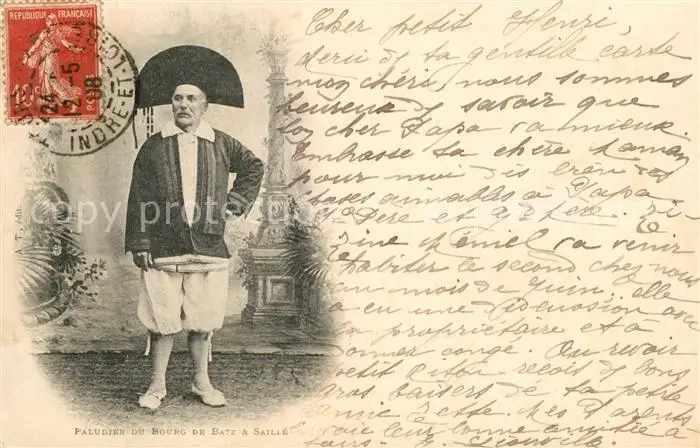 REPUBLIQUE FRANÇAISE
10c POSTES
INDRE-ET-
T. édit.
copyright protected
PALUDIER DU BOURG DE BATZ & SAILLÉ
Cher petit Henri,
de ta gentille carte
mon chéri, nous sommes
heureux de savoir que
ton cher Papa va mieux.
Embrasse ta chère Maman
pour moi dis bien des
choses aimables à Papa
Père et
Zine va venir
habiter le second chez nous
au mois de juin. elle
a eu une discussion avec
la propriétaire et à
donner congé. Au revoir
petit reçois de bons
gros baisers de ta petite
Mes Parents
leur bonne amitiée à
tous.